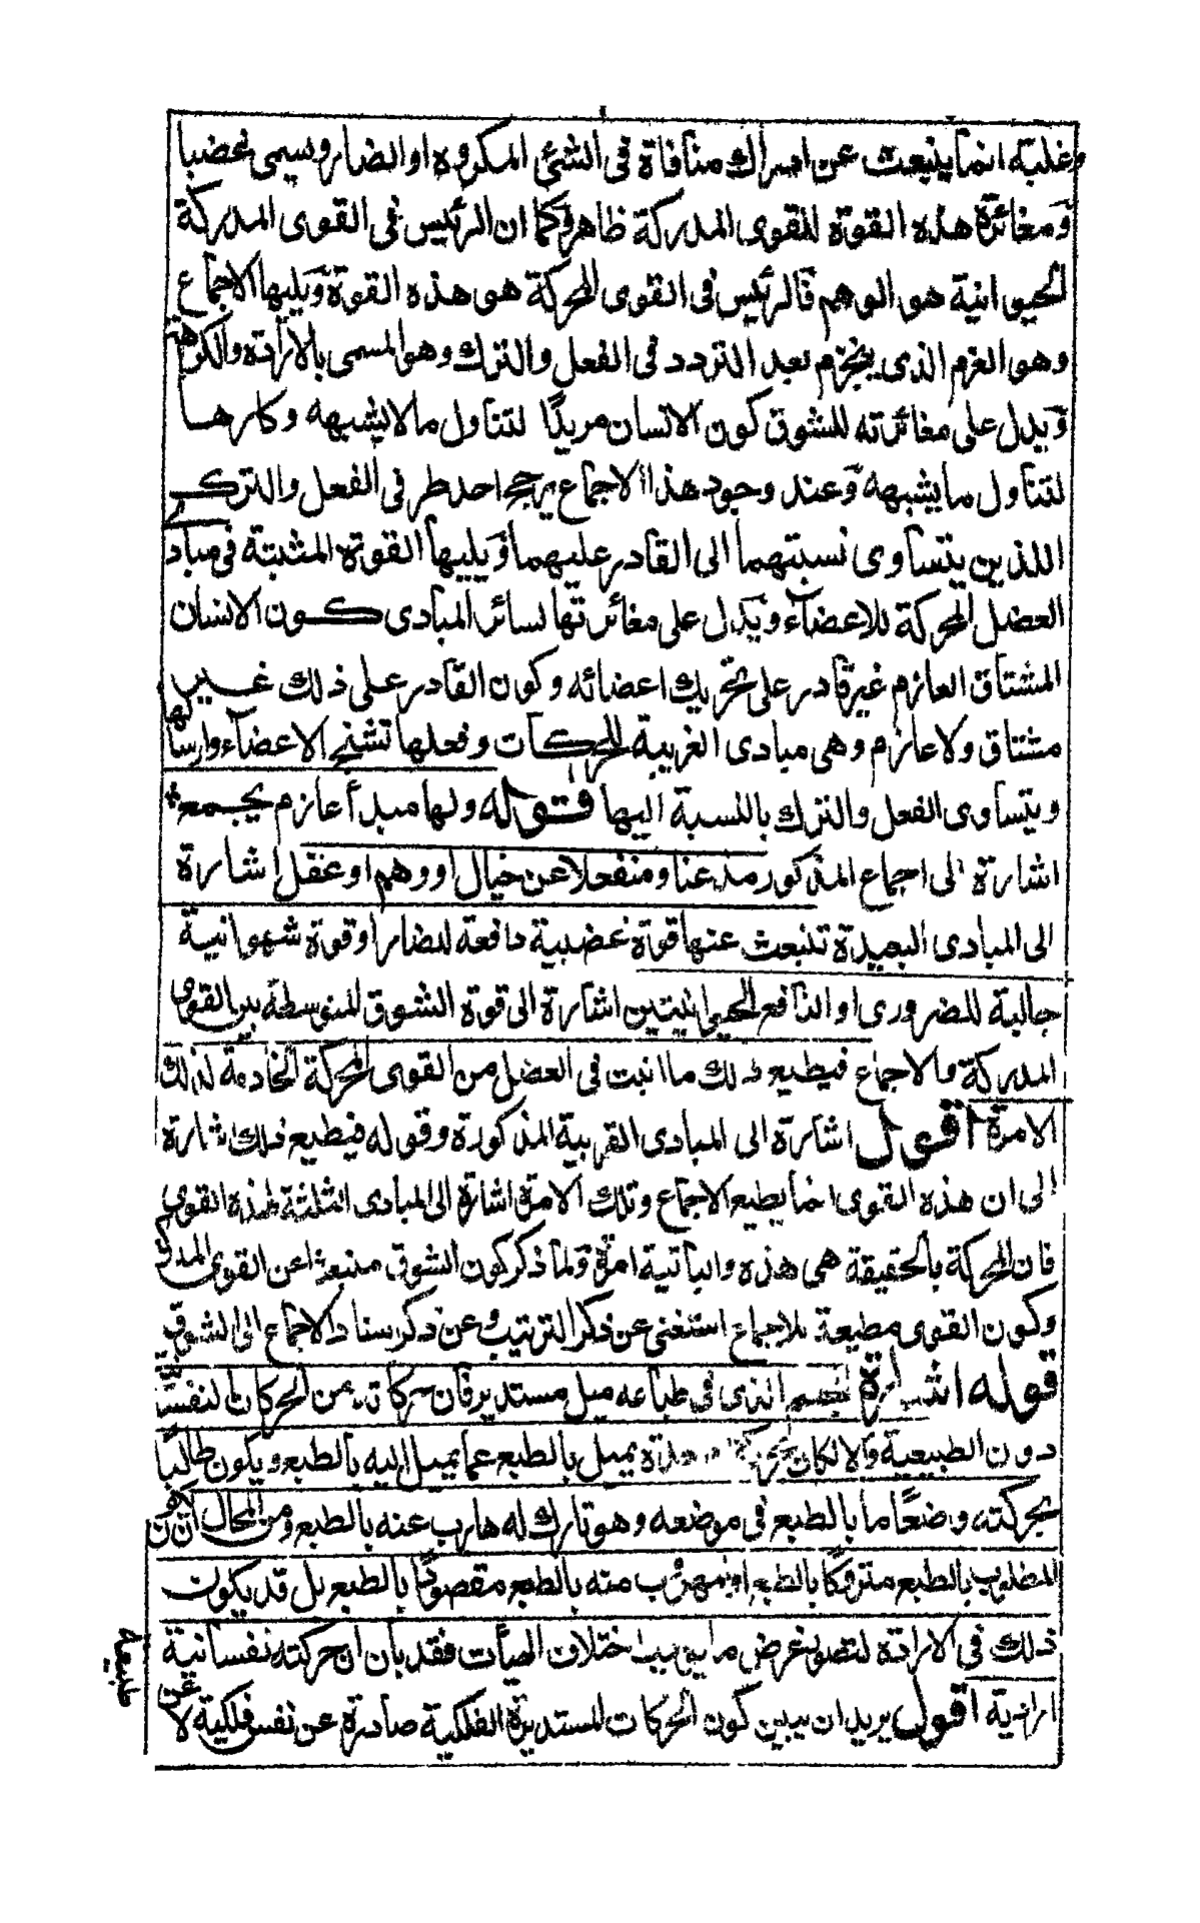 وغلبة انما ينبعث عن ادراك منافاة فى الشئ المكروه او الضار ويسمى غضبا
ومغائرة هذه القوة للقوى المدركة ظاهرة وكما ان الرئيس فى القوى المدركة
الحيوانية هو الوهم فالرئيس فى القوى المحركة هو هذه القوة ويليها الاجماع
وهو العزم الذى ينجزم بعد التردد فى الفعل والترك وهو المسمى بالارادة والكراهة
ويدل على مغائرته للشوق كون الانسان مريدًا لتناول ما لا يشبهه وكارها
لتناول ما يشبهه وعند وجود هذا الاجماع يرجح احد طرفى الفعل والترك
اللذين يتساوى نسبتهما الى القادر عليهما ويليها القوة المثبتة فى مبادى
العضل المحركة للاعضاء ويدل على مغائرتها لسائر المبادى كون الانسان
المشتاق العازم غير قادر على تحريك اعضائه وكون القادر على ذلك غير
مشتاق ولا عازم وهى مبادى القريبة للحركات وفعلها تشنج الاعضاء وارسالها
ويتساوى الفعل والترك بالنسبة اليها قوله ولها مبدأ عازم يجمع
اشارة الى اجماع المذكور مذعنا ومنفعلا عن خيال او وهم او عقل اشارة
الى المبادى البعيدة تنبعث عنها قوة غضبية دافعة للضار او قوة شهوانية
جالبة للضرورى او النافع الحيوانيتين اشارة الى قوة الشوق المتوسطة بين القوى
المدركة والاجماع فيطيع ذلك ما انبت فى العضل من القوى المحركة الخادمة لذلك
الامرة اقول اشارة الى المبادى القريبة المذكورة وقوله فيطيع ذلك اشارة
الى ان هذه القوى انما يطيع الاجماع وتلك الامرة اشارة الى المبادى الثلثة لهذه القوى
فان المحركة بالحقيقة هى هذه والباقية امرة ولما ذكر كون الشوق منبعثا عن القوى المدركة
وكون القوى مطيعة للاجماع استغنى عن ذكر الترتيب وعن ذكر اسناد الاجماع الى الشوق
قوله اشارة الجسم الذى فى طباعه ميل مستدير فان حركاته من الحركات لنفسانية
دون الطبيعية والا لكان بحركة واحدة يميل بالطبع عما يميل اليه بالطبع ويكون طالبًا
بحركته وضعًا ما بالطبع فى موضعه وهو تارك له هارب عنه بالطبع ومن المحال ان يكون
المطلوب بالطبع متروكًا بالطبع او المهروب منه بالطبع مقصودًا بالطبع بل قد يكون
ذلك فى الارادة لتصور غرض ما يوجب اختلاف الهيئات فقد بان ان حركته نفسانية
ارادية اقول يريد ان يبين كون الحركات المستديرة الفلكية صادرة عن نفس فلكية لا عن
طبيعة